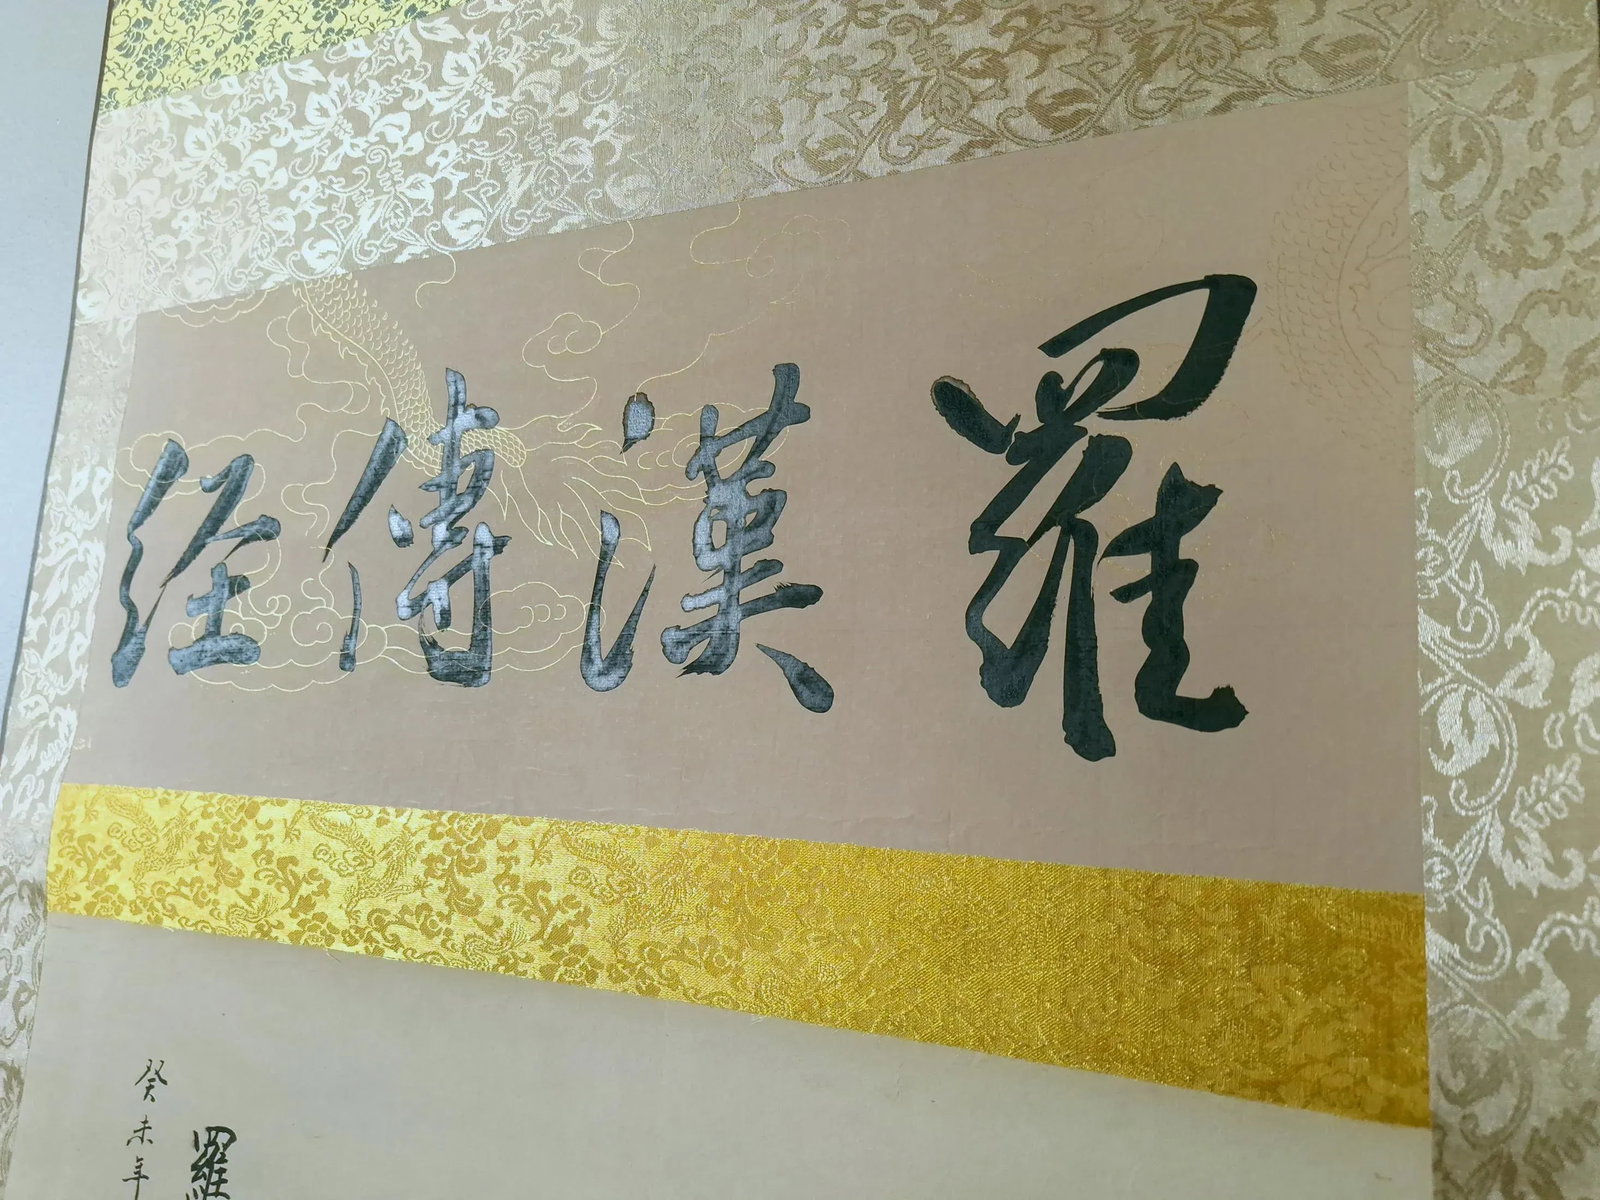 羅漢傳経
羅
癸未年